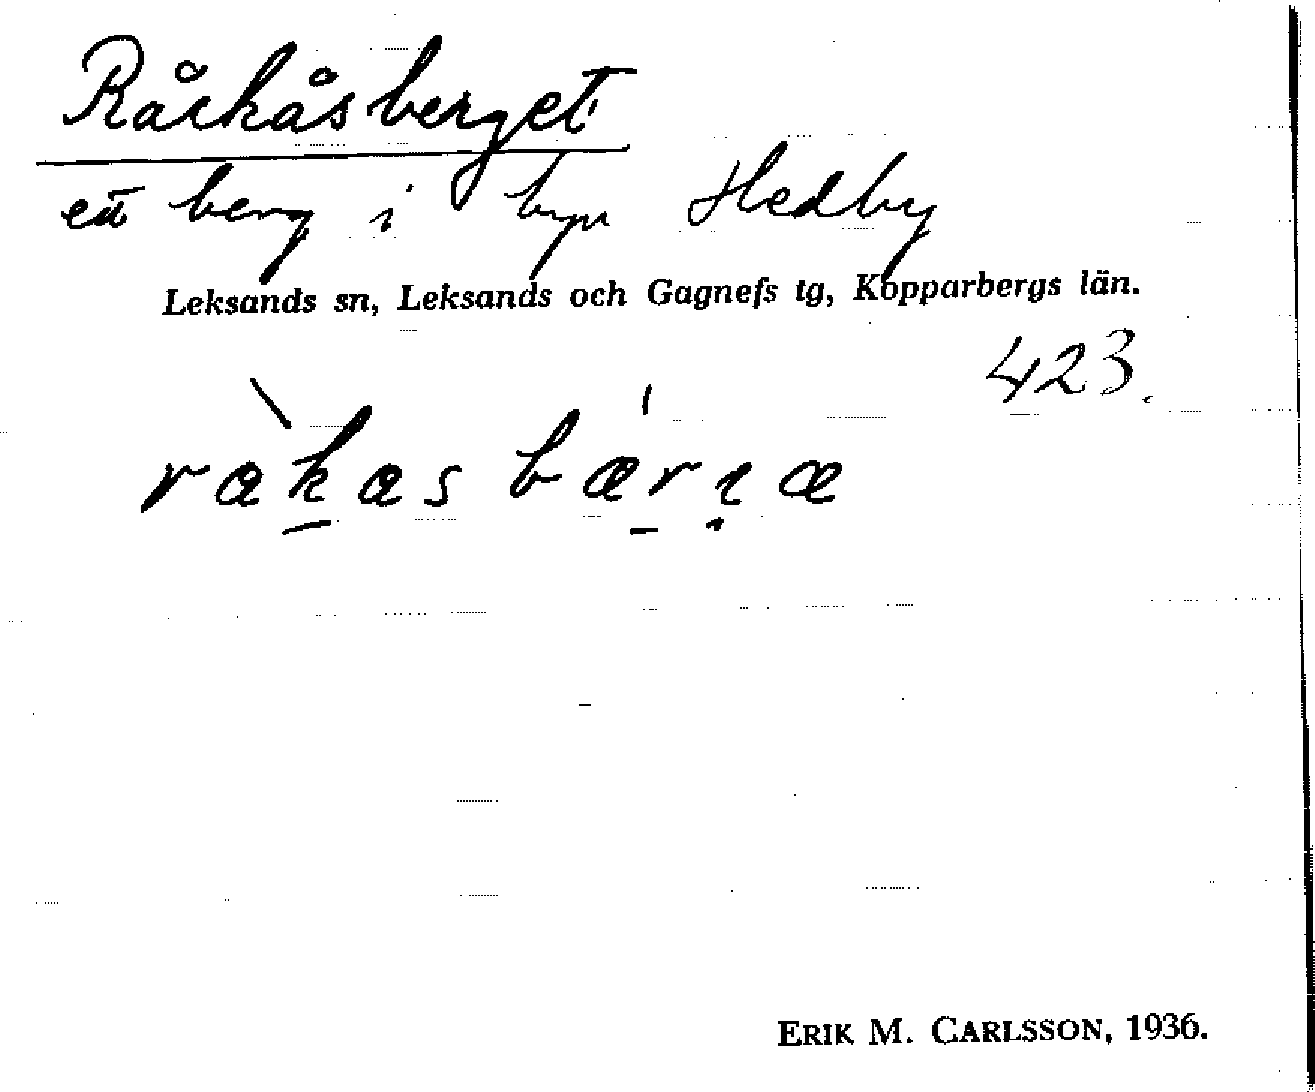 Råckåsberget
ett berg i byn Hedby
Leksands sn, Leksands och Gagnefs tg, Kopparbergs län.
423.
ERIK M. CARLSSON, 1936.